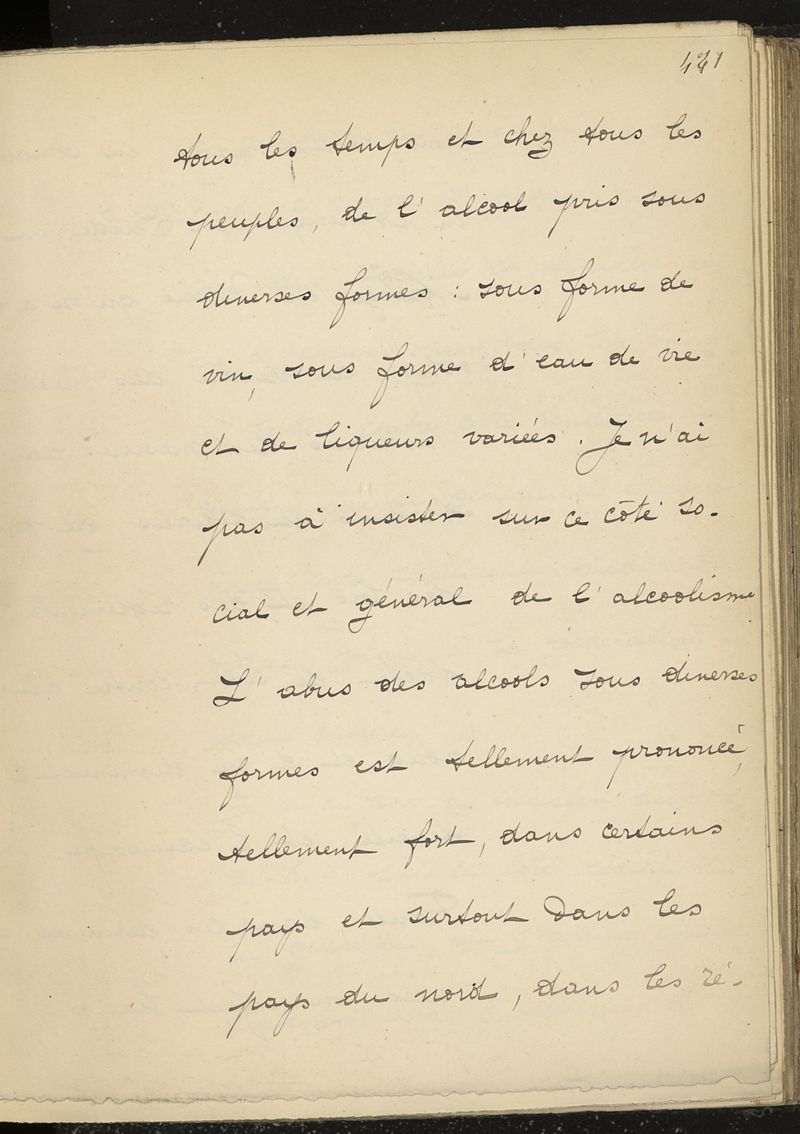 tous les temps et chez tous les
peuples, de l'alcool pris sous
diverses formes : sous forme de
vin, sous forme d'eau de vie
et de liqueurs variées. Je n'ai
pas à insister sur ce côté so-
cial et général de l'alcoolisme
L'abus des alcools sous diverses
formes est tellement prononcé,
tellement fort, dans certains
pays et surtout dans les
pays du nord, dans les ré-